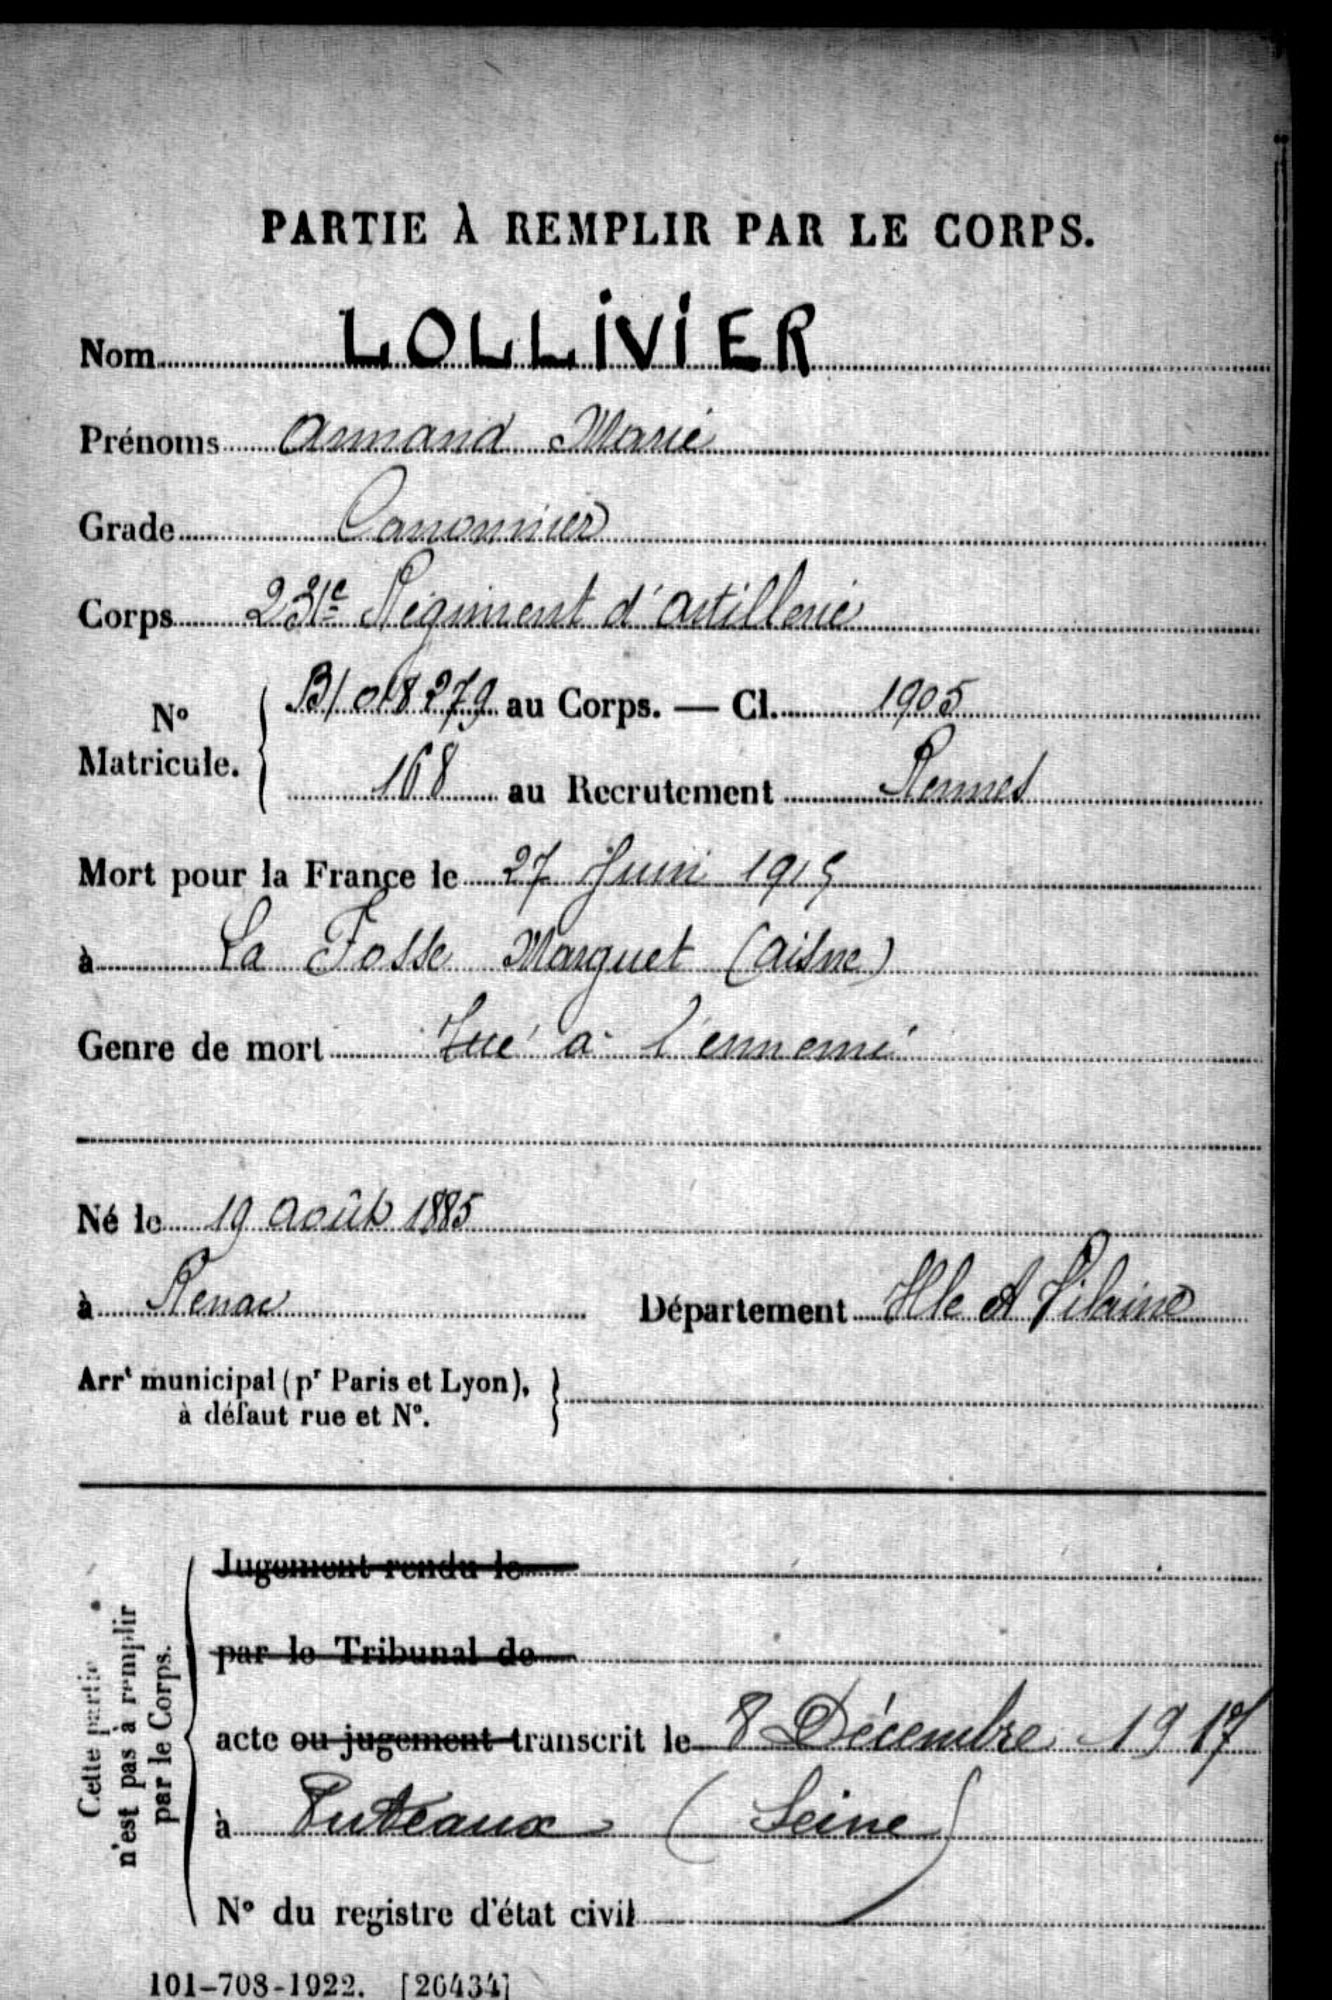 PARTIE À REMPLIR PAR LE CORPS.
Nom LOLLIVIER
Prénoms Armand Marie
Grade Canonnier
Corps 231e Régiment d'artillerie
N° Matricule. { B/018279 au Corps. — Cl. 1905
168 au Recrutement Rennes
Mort pour la France le 27 Juin 1915
à La Fosse Marguet (Aisne)
Genre de mort Tué à l'ennemi
Né le 19 Août 1885
à Renac Département Ille et Vilaine
Arrt municipal (pr Paris et Lyon),
à défaut rue et N°.
Cette partie
n'est pas à remplir
par le Corps.
Jugement rendu le
par le Tribunal de
acte ou jugement transcrit le 8 Décembre 1917
à Puteaux (Seine)
N° du registre d'état civil
101-708-1922. [26434]